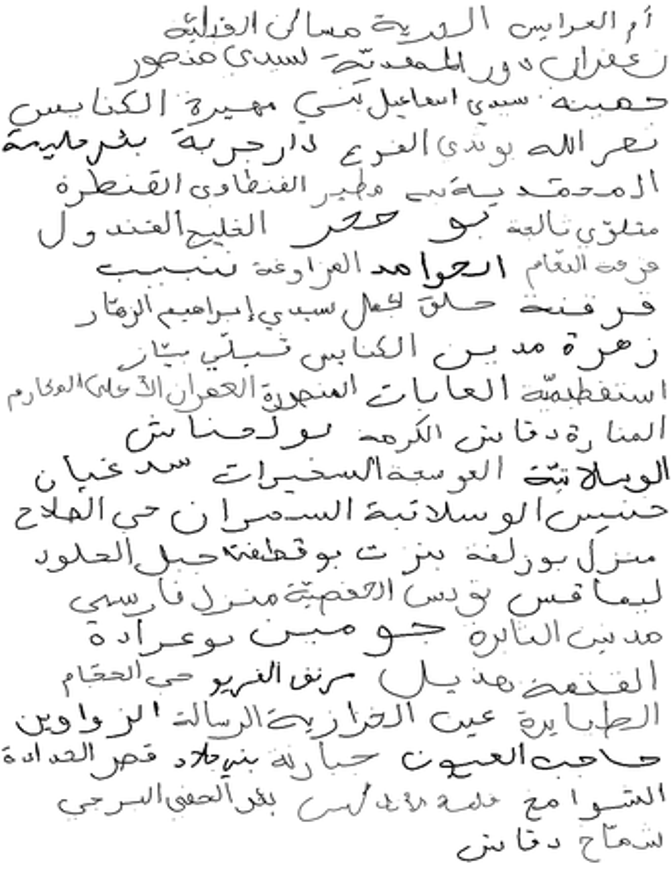 أم العرايس الدرية مساكن القبلية
زعفران دور المحمديّة لسيدي منصور
حهينة سيدي اسماعيل بنبي مهيرة الكنايس
نصر الله بوندي القرع دار جربة بئر مليمة
المحمّدية مطير الفنطاوي القنطرة
متلوي ثالجة بو حجر الخليج الفندول
فرحة النعام الحوامد العزاوعة تنبيب
قرقنة حلق الجمل سيدي إبراهيم الزهار
زهرة مدين الكنايس تبيلي بيّاز
اسقطيميّة الغابات المنصورة العمران الأعلى المكارم
المنارة دقاش الكرمة بولحناش
الوسلاتيّة العوسجة السخيرات سد غيان
خنيس الوسلاتية السمران حي الصلاح
منزل بوزلفة بنزت بوقطفة جبل الجلود
ليماقس تونس الحفصيّة منزل فارسي
مدنين النايرة جومين بوعرادة
القنعة هذيل مرنق الفريو حي الحجّام
الطبايرة عين الخرازية الرسالة الزواوين
حاجب العيون جبارنة بني جلاد قصر الحدادة
الشوامخ قلعة الأندلس بئر الحفي السرجي
شمّاخ دقاش